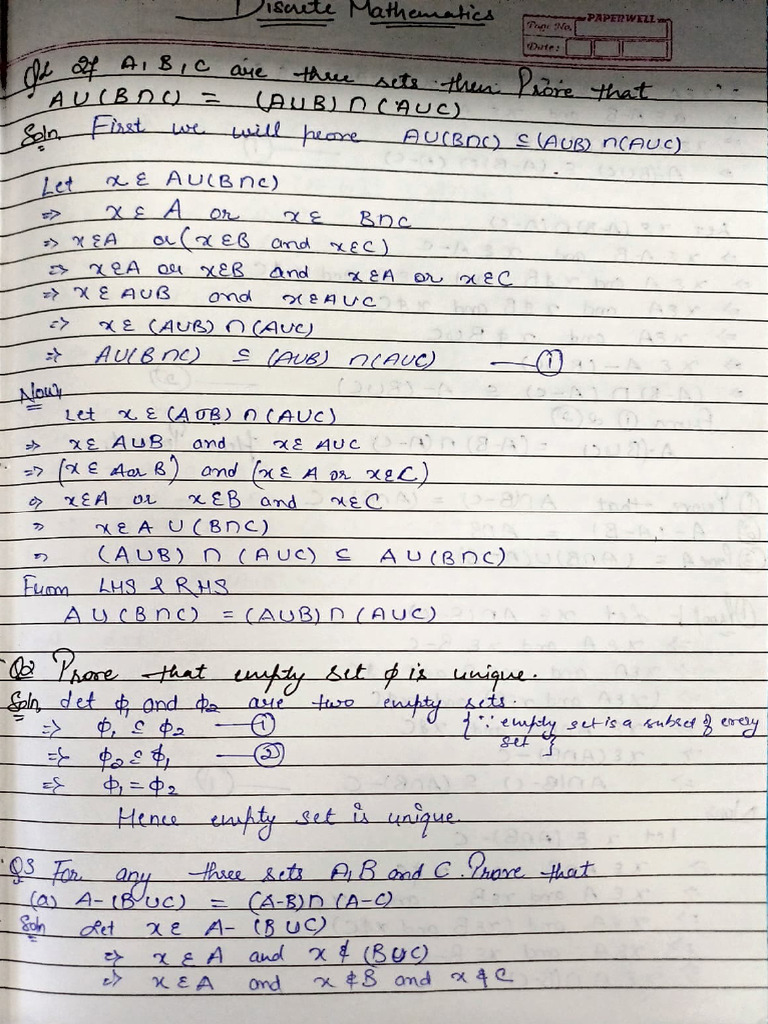 Discrete Mathematics
PAPERWELL
Page No.
Date:
Q1 If A, B, C are three sets then Prove that
A∪(B∩C) = (A∪B)∩(A∪C)
Soln. First we will prove A∪(B∩C) ⊆ (A∪B)∩(A∪C)
Let x ε A∪(B∩C)
⇒ x ε A or x ε B∩C
⇒ x ε A or (x ε B and x ε C)
⇒ x ε A or x ε B and x ε A or x ε C
⇒ x ε A∪B and x ε A∪C
⇒ x ε (A∪B)∩(A∪C)
⇒ A∪(B∩C) ⊆ (A∪B)∩(A∪C) —①
Now,
Let x ε (A∪B)∩(A∪C)
⇒ x ε A∪B and x ε A∪C
⇒ (x ε A or B) and (x ε A or x ε C)
⇒ x ε A or x ε B and x ε C
⇒ x ε A ∪ (B∩C)
⇒ (A∪B) ∩ (A∪C) ⊆ A∪(B∩C)
From LHS & RHS
A∪(B∩C) = (A∪B)∩(A∪C)
Q2 Prove that empty set ϕ is unique.
Soln. Let ϕ₁ and ϕ₂ are two empty sets.
⇒ ϕ₁ ⊆ ϕ₂ —① {∵ empty set is a subset of every
set }
⇒ ϕ₂ ⊆ ϕ₁ —②
⇒ ϕ₁ = ϕ₂
Hence empty set is unique.
Q3 For any three sets A, B and C. Prove that
(a) A-(B∪C) = (A-B)∩(A-C)
Soln Let x ε A-(B∪C)
⇒ x ε A and x ∉ (B∪C)
⇒ x ε A and x ∉ B and x ∉ C